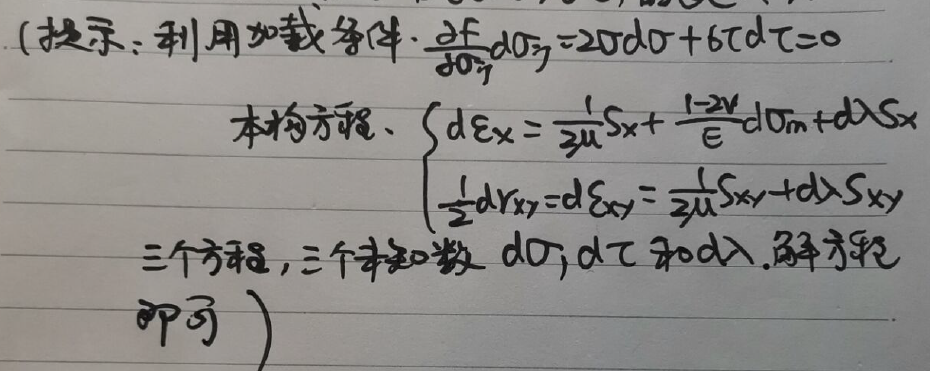 (提示:利用加载条件. ∂f/∂σij dσij = 2σdσ + 6τdτ = 0
本构方程、 { dεx = 1/2μ Sx + 1-2ν/E dσm + dλSx
1/2 dγxy = dεxy = 1/2μ Sxy + dλSxy
三个方程,三个未知数 dσ, dτ 和dλ.解方程
即可)